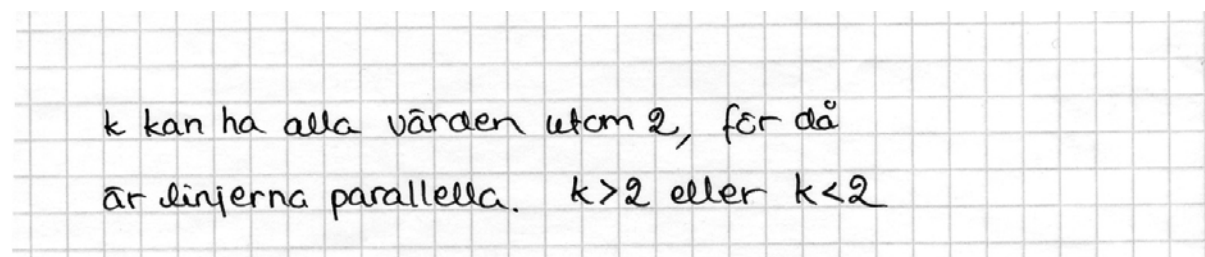 k kan ha alla värden utom 2, för då
är linjerna parallella. k>2 eller k<2